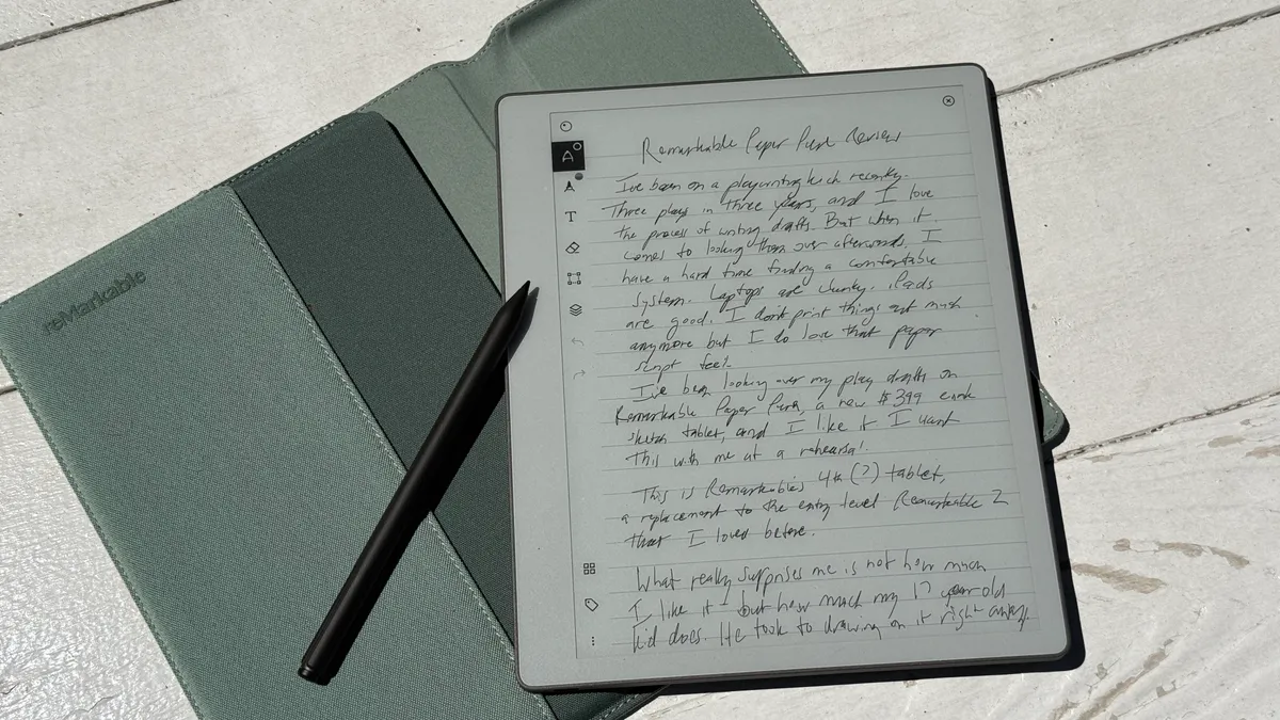 reMarkable
Remarkable Paper Pure Review
I've been on a playwriting kick recently.
Three plays in three years, and I love
the process of writing drafts. But when it
comes to looking them over afterwards, I
have a hard time finding a comfortable
system. Laptops are clunky. iPads
are good. I don't print things out much
anymore but I do love that paper
script feel.
I've been looking over my play drafts on
Remarkable Paper Pure, a new $399 eink
sketch tablet, and I like it I want
this with me at a rehearsal!
This is Remarkable's 4th (?) tablet,
a replacement to the entry level Remarkable 2
that I loved before.
What really surprises me is not how much
I like it - but how much my 17 year old
kid does. He took to drawing on it right away.